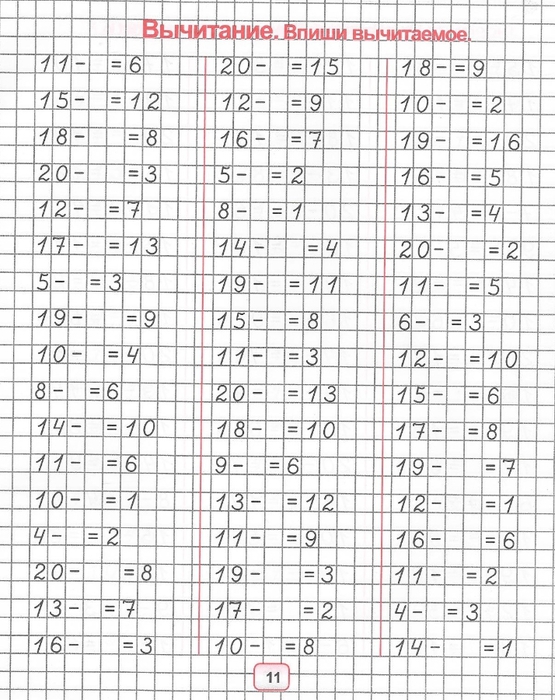 Вычитание. Впиши вычитаемое.
11- =6
15- =12
18- =8
20- =3
12- =7
17- =13
5- =3
19- =9
10- =4
8- =6
14- =10
11- =6
10- =1
4- =2
20- =8
13- =7
16- =3
20- =15
12- =9
16- =7
5- =2
8- =1
14- =4
19- =11
15- =8
11- =3
20- =13
18- =10
9- =6
13- =12
11- =9
19- =3
17- =2
10- =8
18- =9
10- =2
19- =16
16- =5
13- =4
20- =2
11- =5
6- =3
12- =10
15- =6
17- =8
19- =7
12- =1
16- =6
11- =2
4- =3
14- =1
11